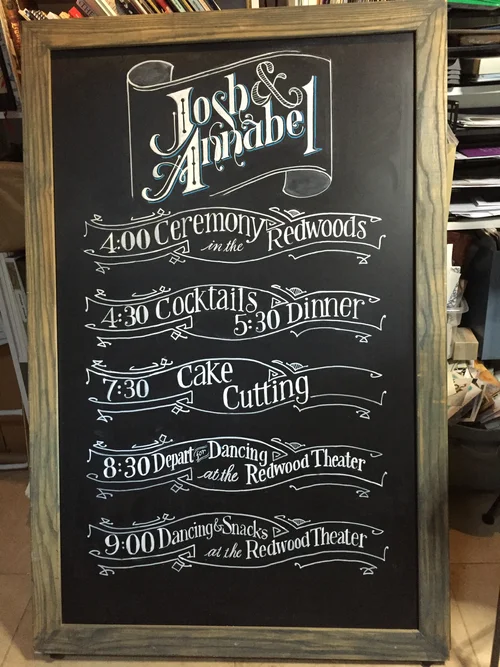 Josh &
Annabel
4:00 Ceremony in the Redwoods
4:30 Cocktails 5:30 Dinner
7:30 Cake Cutting
8:30 Depart for Dancing
at the Redwood Theater
9:00 Dancing & Snacks
at the Redwood Theater